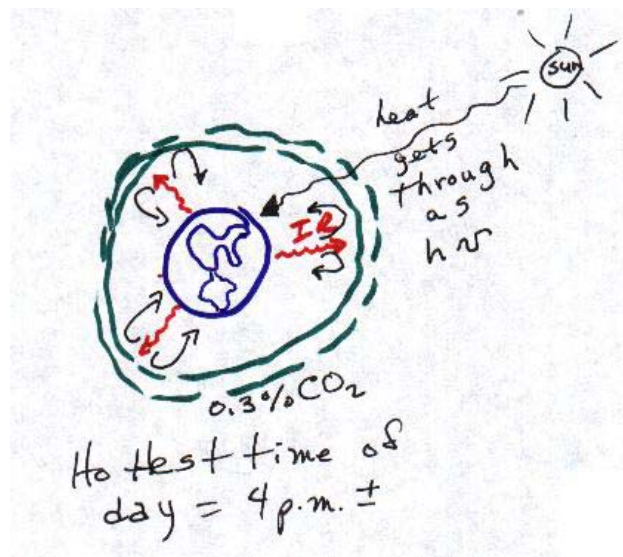 sun
heat
gets
through
as
hν
IR
0.3% CO₂
Hottest time of
day = 4 p.m. ±